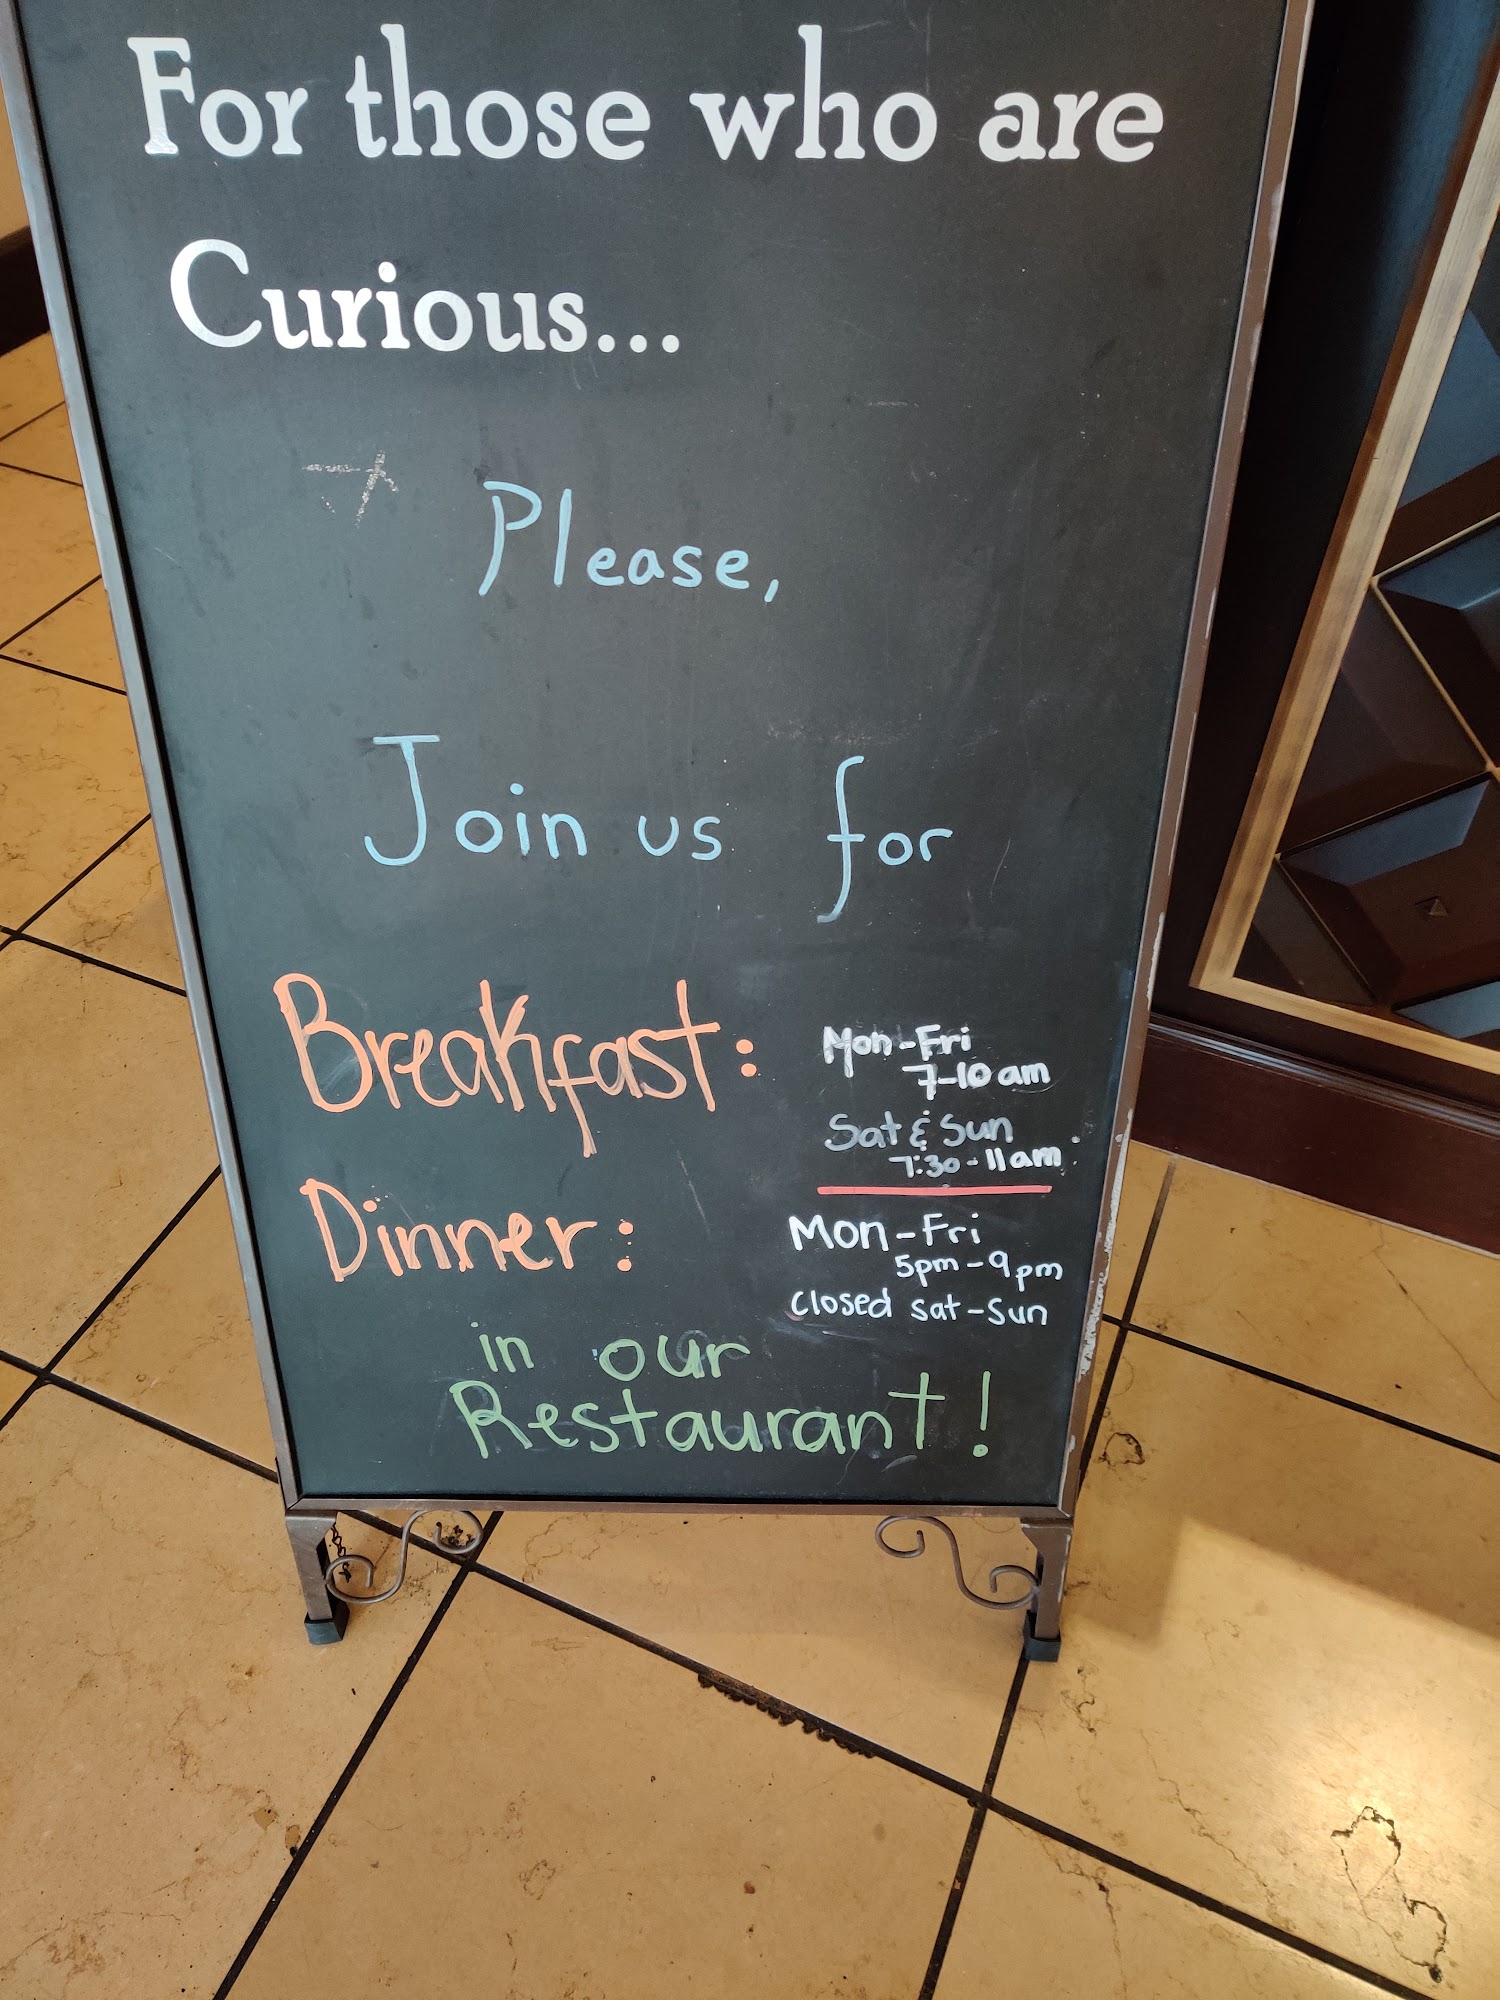 For those who are
Curious...
Please,
Join us for
Breakfast: Mon-Fri
7-10 am
Sat & Sun
7:30-11am
Dinner: Mon-Fri
5pm-9pm
closed sat-sun
in our
Restaurant!